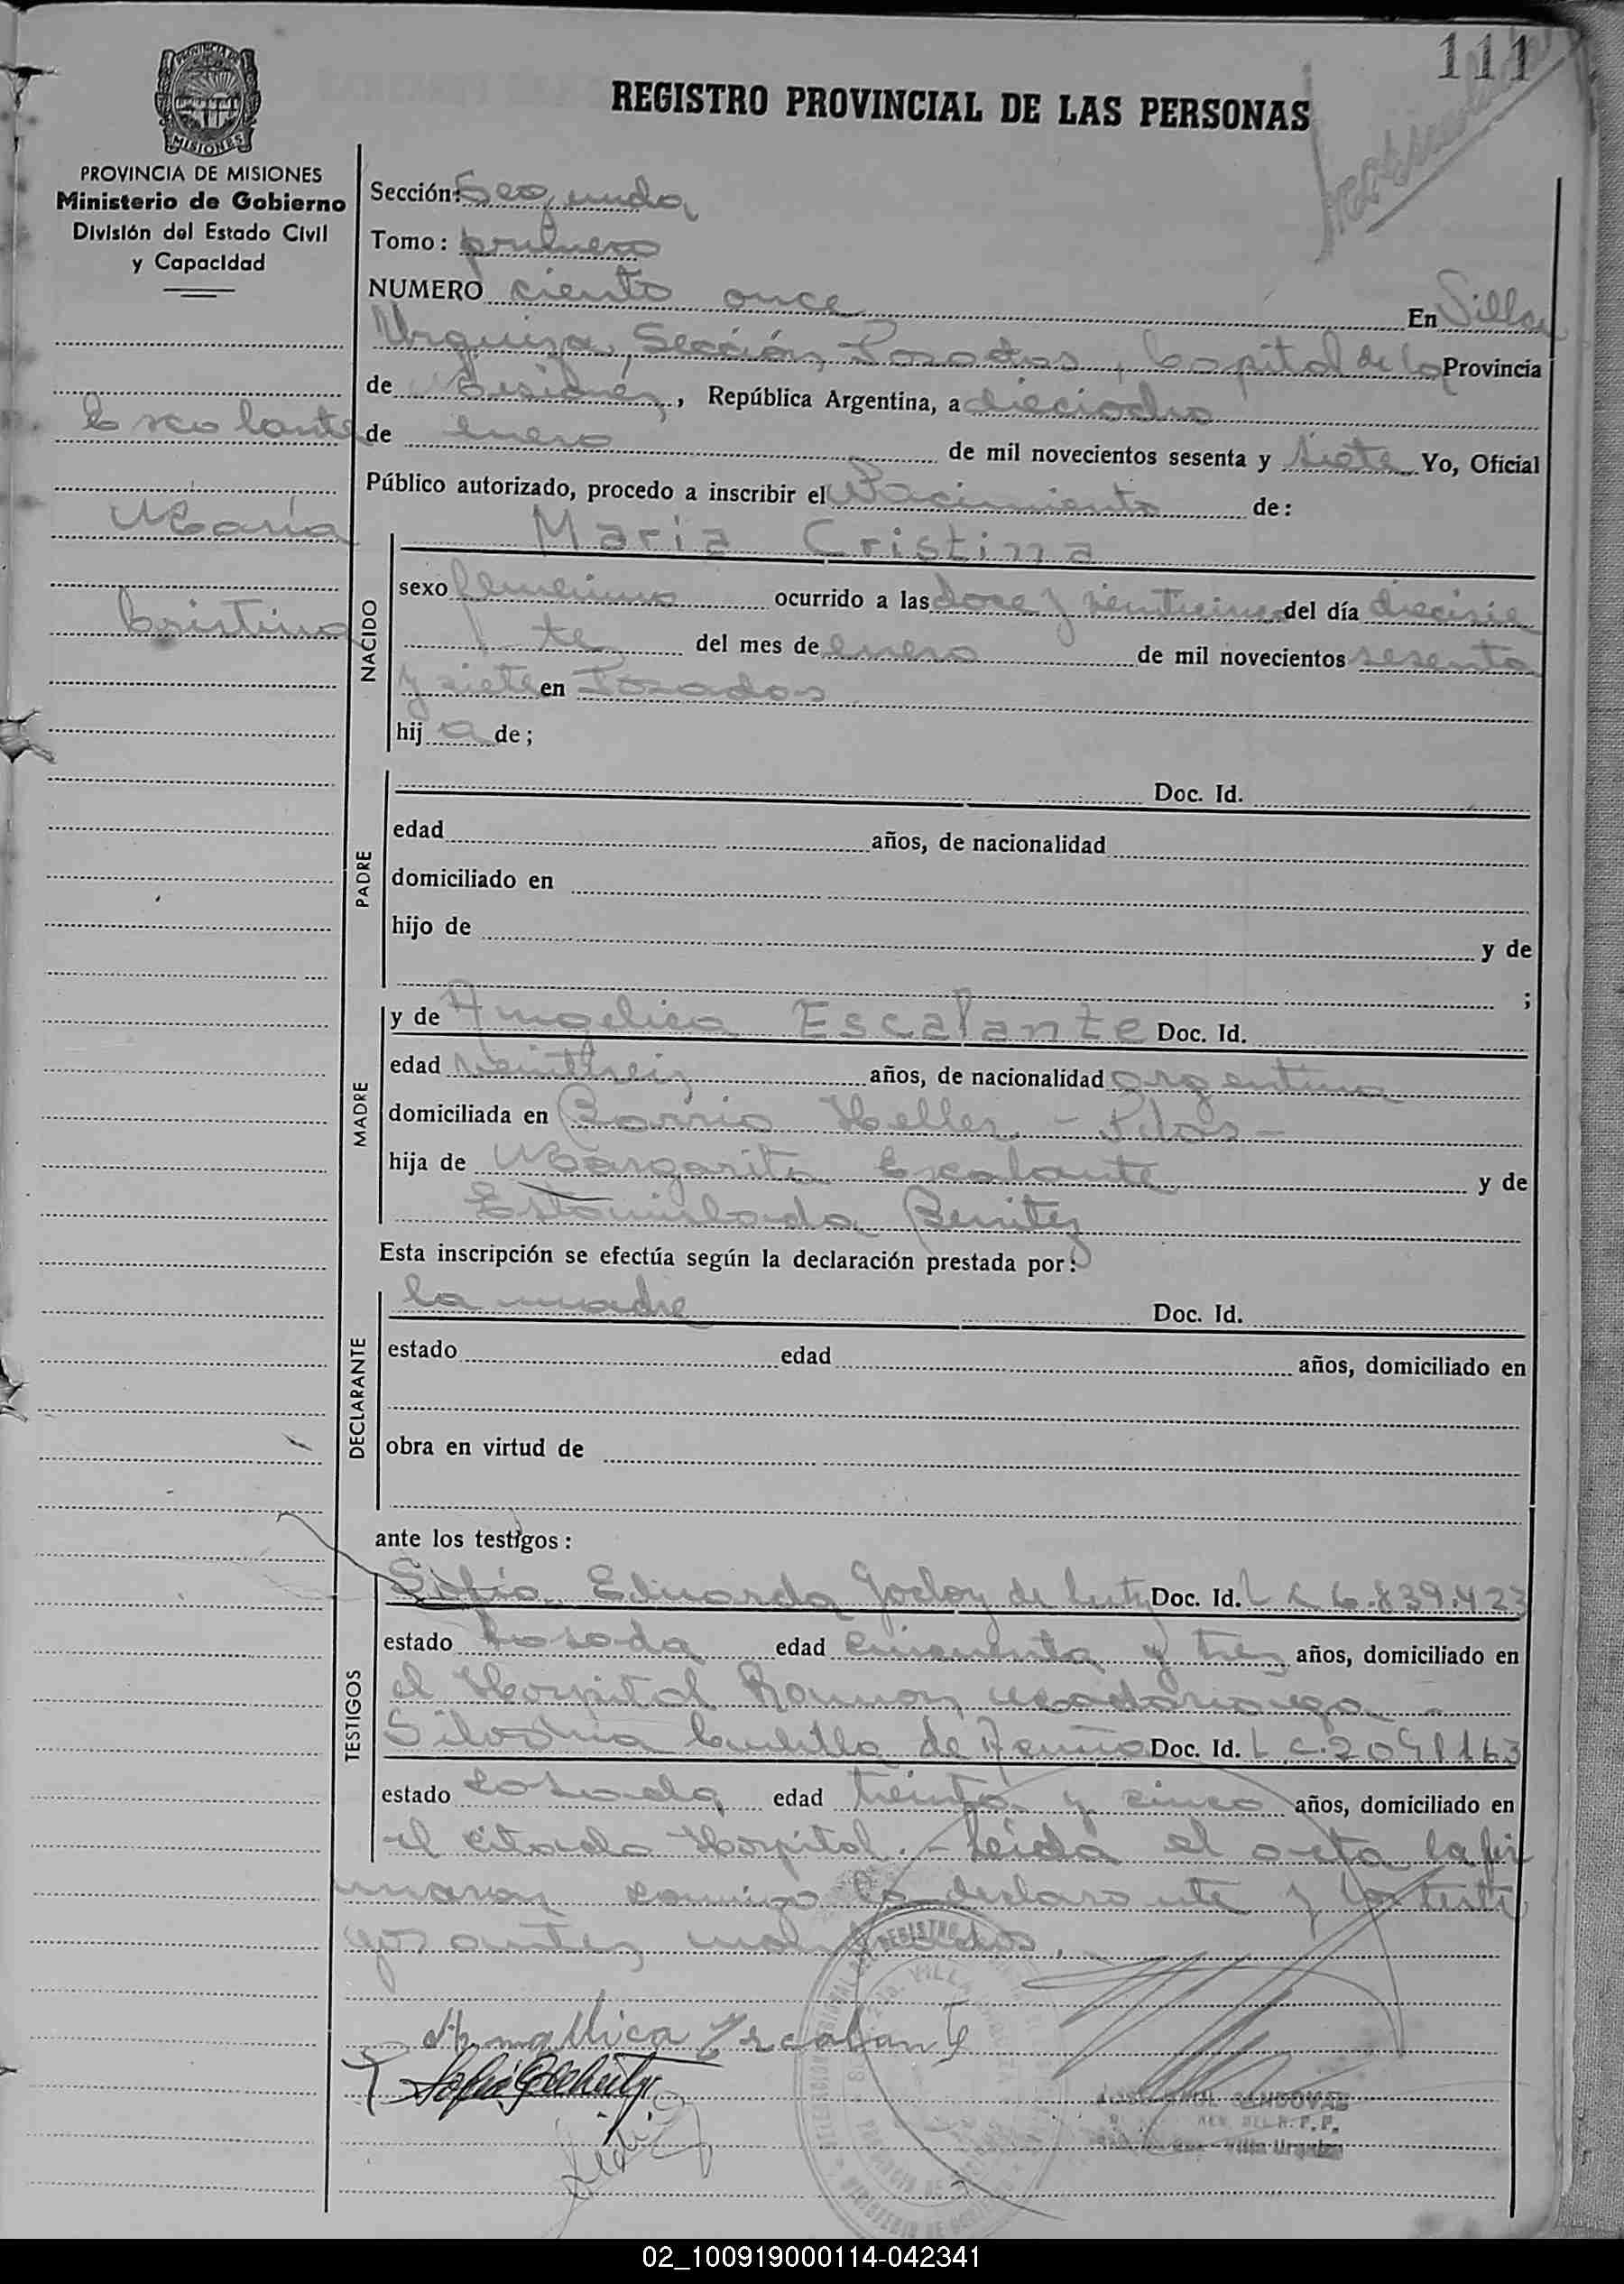 111
REGISTRO PROVINCIAL DE LAS PERSONAS
PROVINCIA DE MISIONES
Ministerio de Gobierno
División del Estado Civil
y Capacidad
Escalante
María
Cristina
Sección: Segunda
Tomo: primero
NUMERO ciento once En Villa
Urquiza, Sección Posadas, Capital de la Provincia
de Misiones, República Argentina, a dieciocho
de enero de mil novecientos sesenta y siete Yo, Oficial
Público autorizado, procedo a inscribir el Nacimiento de:
NACIDO
María Cristina
sexo femenino ocurrido a las doce y veinticinco del día diecisie
te del mes de enero de mil novecientos sesenta
y siete en Posadas
hij a de;
PADRE
Doc. Id.
edad años, de nacionalidad
domiciliado en
hijo de y de
;
MADRE
y de Angelica Escalante Doc. Id.
edad años, de nacionalidad argentina
domiciliada en Barrio Heller - Pdas -
hija de Margarita Escalante y de
Estanislada Benitez
Esta inscripción se efectúa según la declaración prestada por:
DECLARANTE
la madre Doc. Id.
estado edad años, domiciliado en
obra en virtud de
ante los testigos:
TESTIGOS
Sofía Eduarda Godoy de Lutz Doc. Id. L C 6.839.423
estado casada edad cincuenta y tres años, domiciliado en
el Hospital Ramon Madariaga -
de Doc. Id. L.C. 2041163
estado casada edad treinta y cinco años, domiciliado en
el citado Hospital. - Leída el acta la fir
maron conmigo la declarante y los testi
gos antes
Angelica Escalante
JOSE RAUL SANDOVAL
DEL R. P. P.
Villa Urquiza
02_100919000114-042341